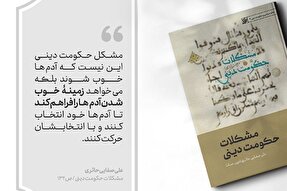 مشکل حکومت دینی
این نیست که آدم‌ها
خوب شوند بلکه
می‌خواهد زمینهٔ خوب
شدن آدم‌ها را فراهم کند
تا آدم‌ها خود انتخاب
کنند و با انتخابشان
حرکت کنند.
علی صفایی حائری
مشکلات حکومت دینی / ص۱۳۲
مشکلات
حکومت دینی
مشکلات
حکومت دینی